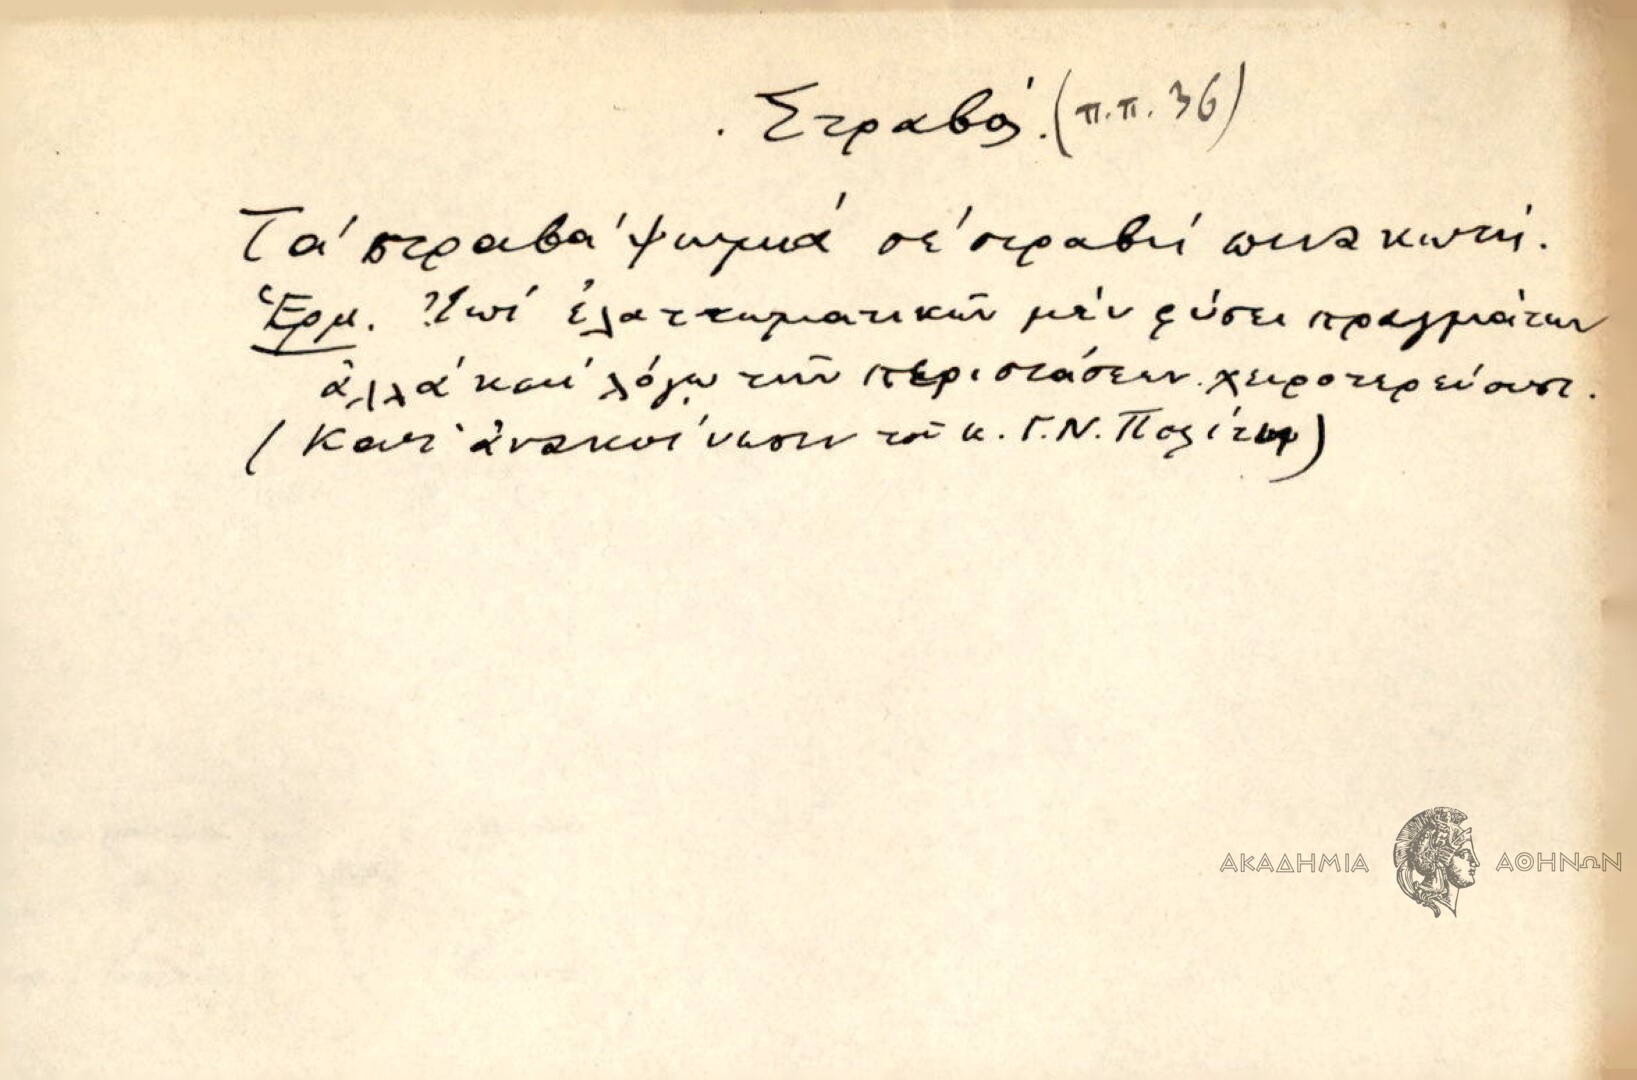 . Στραβός. (π.π. 36)
Τά στραβά ψωμιά σέ στραβή πινακωτή.
Ἑρμ. Ἐπί ἐλαττωματικῶν μέν φύσει πραγμάτων
ἀλλά καί λόγῳ τῶν περιστάσεων χειροτερεύουσι.
(Κατ' ἀνακοίνωσιν τοῦ κ. Γ.Ν. Πολίτου)
ΑΚΑΔΗΜΙΑ ΑΘΗΝΩΝ